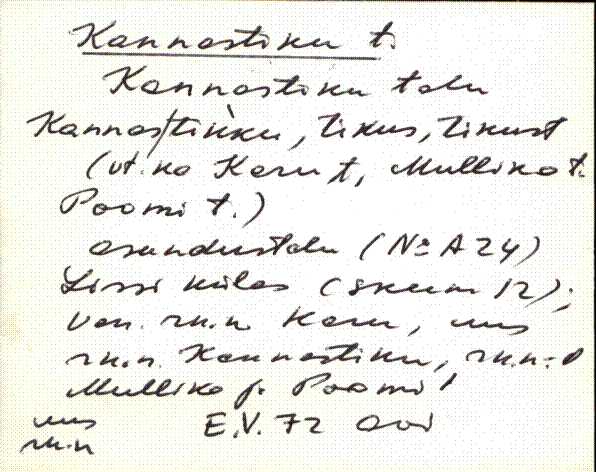 Kannastiku t.
Kannastiku talu
Kannas/tikku, tikus, tikust
(vt. ka Karu t, Mullika t.
Poomi t.)
asundustalu (№ A 24)
Lissi külas (skeem 12);
van. rk.n. Karu, uus
rk.n. Kannastiku, rk.n:
Mullika ja Poomi
uus rk.n
E.V. 72